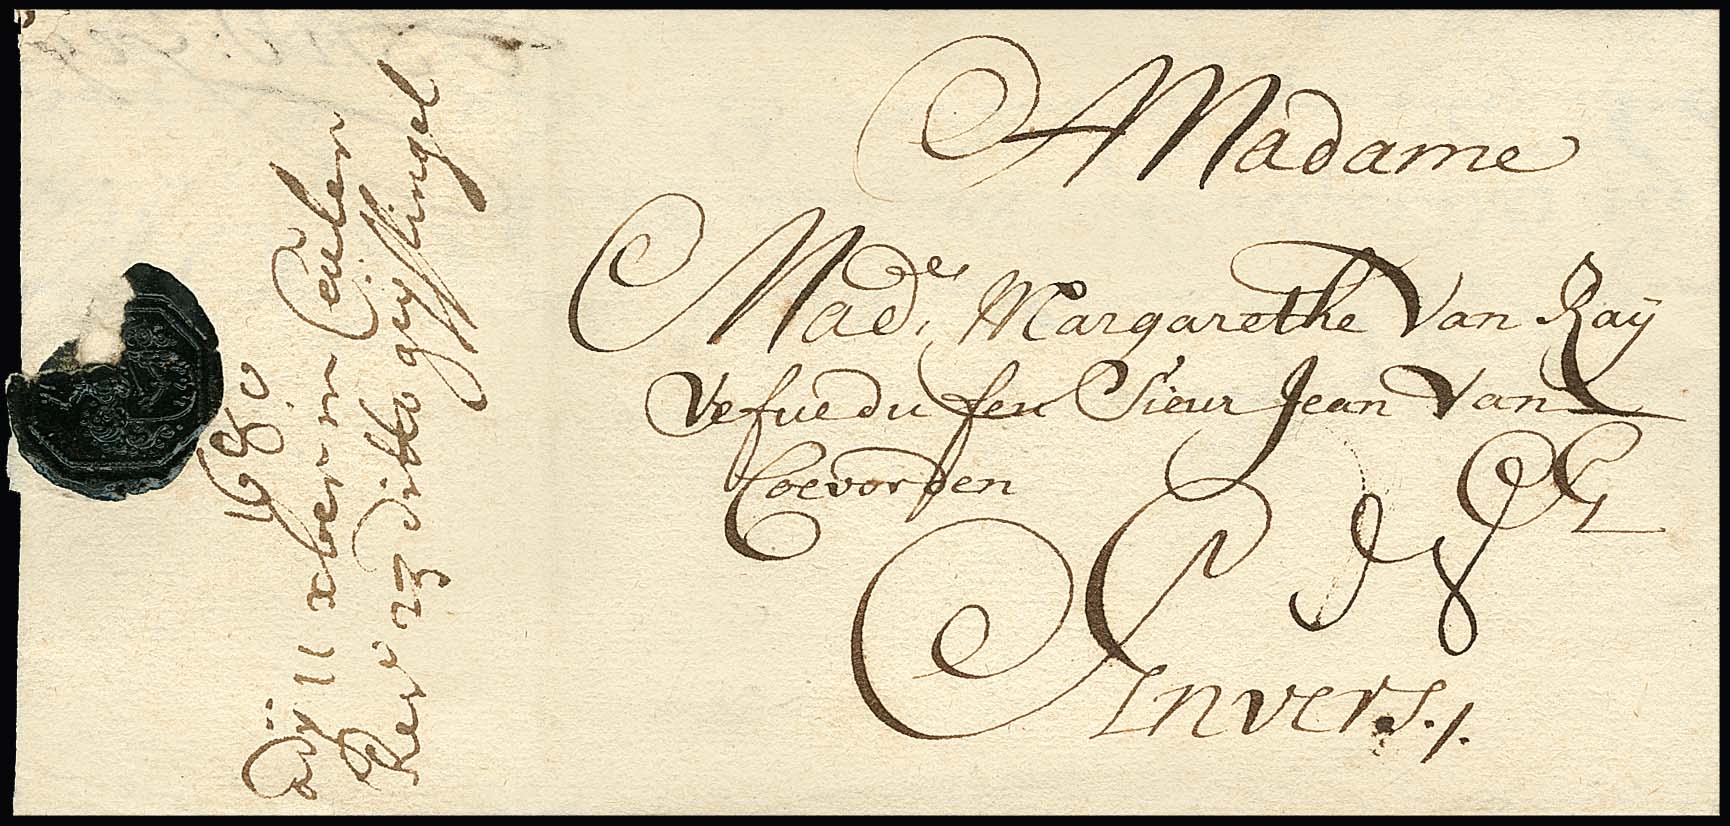 Madame
Mad.e Margarethe Van Raÿ
Vefue du feu Sieur Jean Van
Coevorden
Anvers./.
1680
11 xber in Ceulen
23 ditto